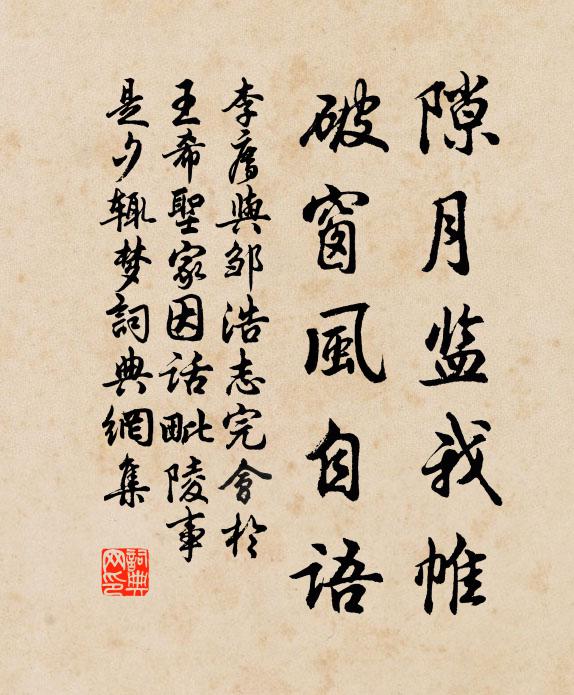 隙月监我帷
破窗風自語
李廌與邹浩志完會於
王希聖家因话毗陵事
是夕辄梦詞典網集
詞典
网印